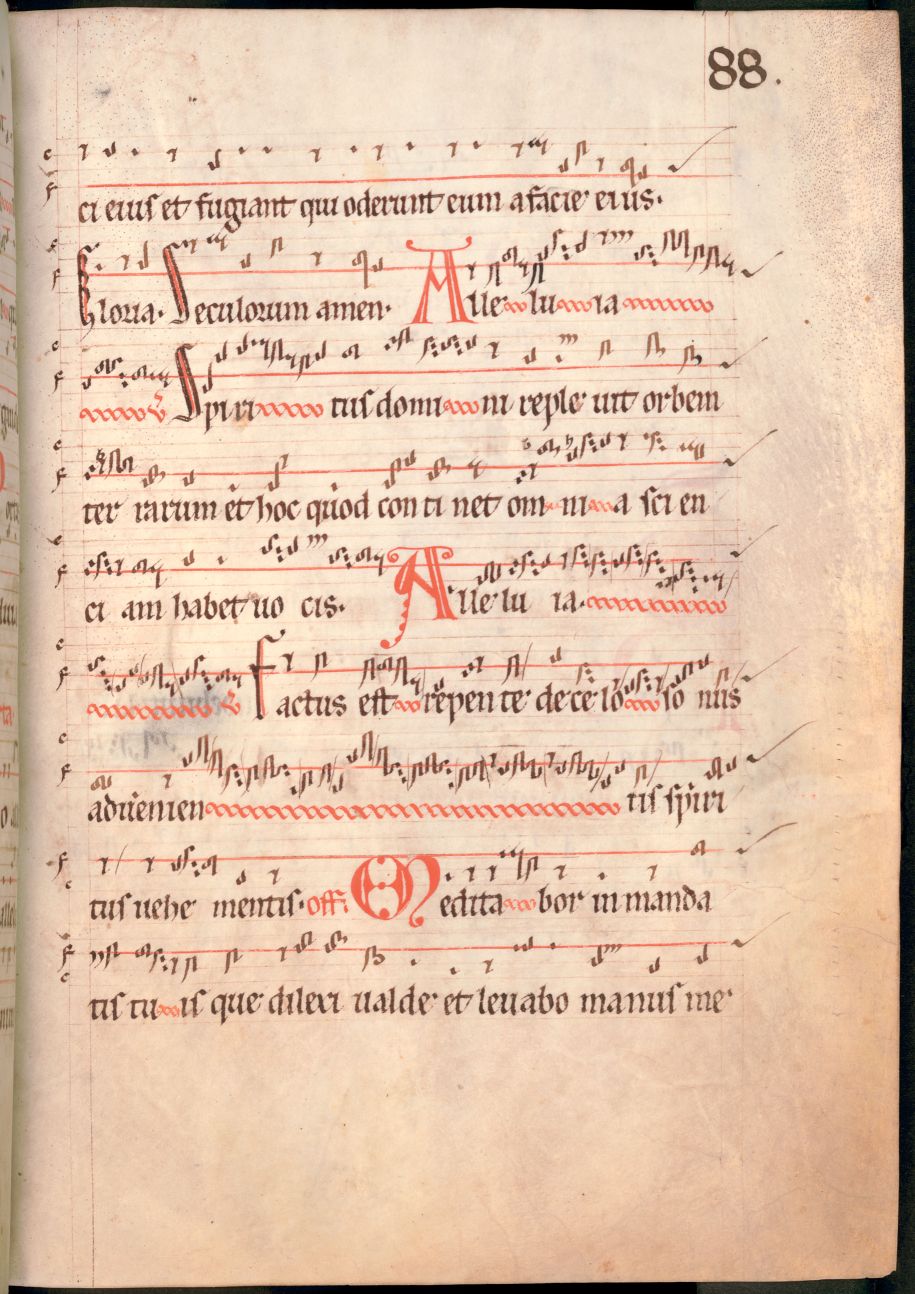 88.
ci eius et fugiant qui oderunt eum a facie eius.
Gloria. Seculorum amen. Alle lu ia
℣ Spi ri tus domi ni reple uit orbem
ter rarum et hoc quod con ti net om ni a sci en
ci am habet uo cis. Alle lu ia.
℣ Factus est repen te de ce lo so nus
aduenien tis spiri
tus uehe mentis. off. Medita bor in manda
tis tu is que dilexi ualde et leuabo manus me